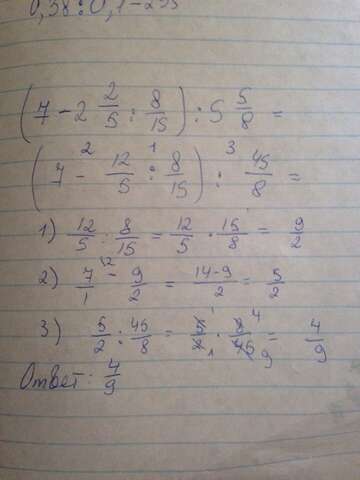 0,38:0,1-255
(7 - 2 2/5 : 8/15) : 5 5/8 =
(7 - 12/5 : 8/15) : 45/8 =
1) 12/5 : 8/15 = 12/5 · 15/8 = 9/2
2) 7/1 - 9/2 = 14-9/2 = 5/2
3) 5/2 : 45/8 = 5/2 · 8/45 = 4/9
Ответ: 4/9